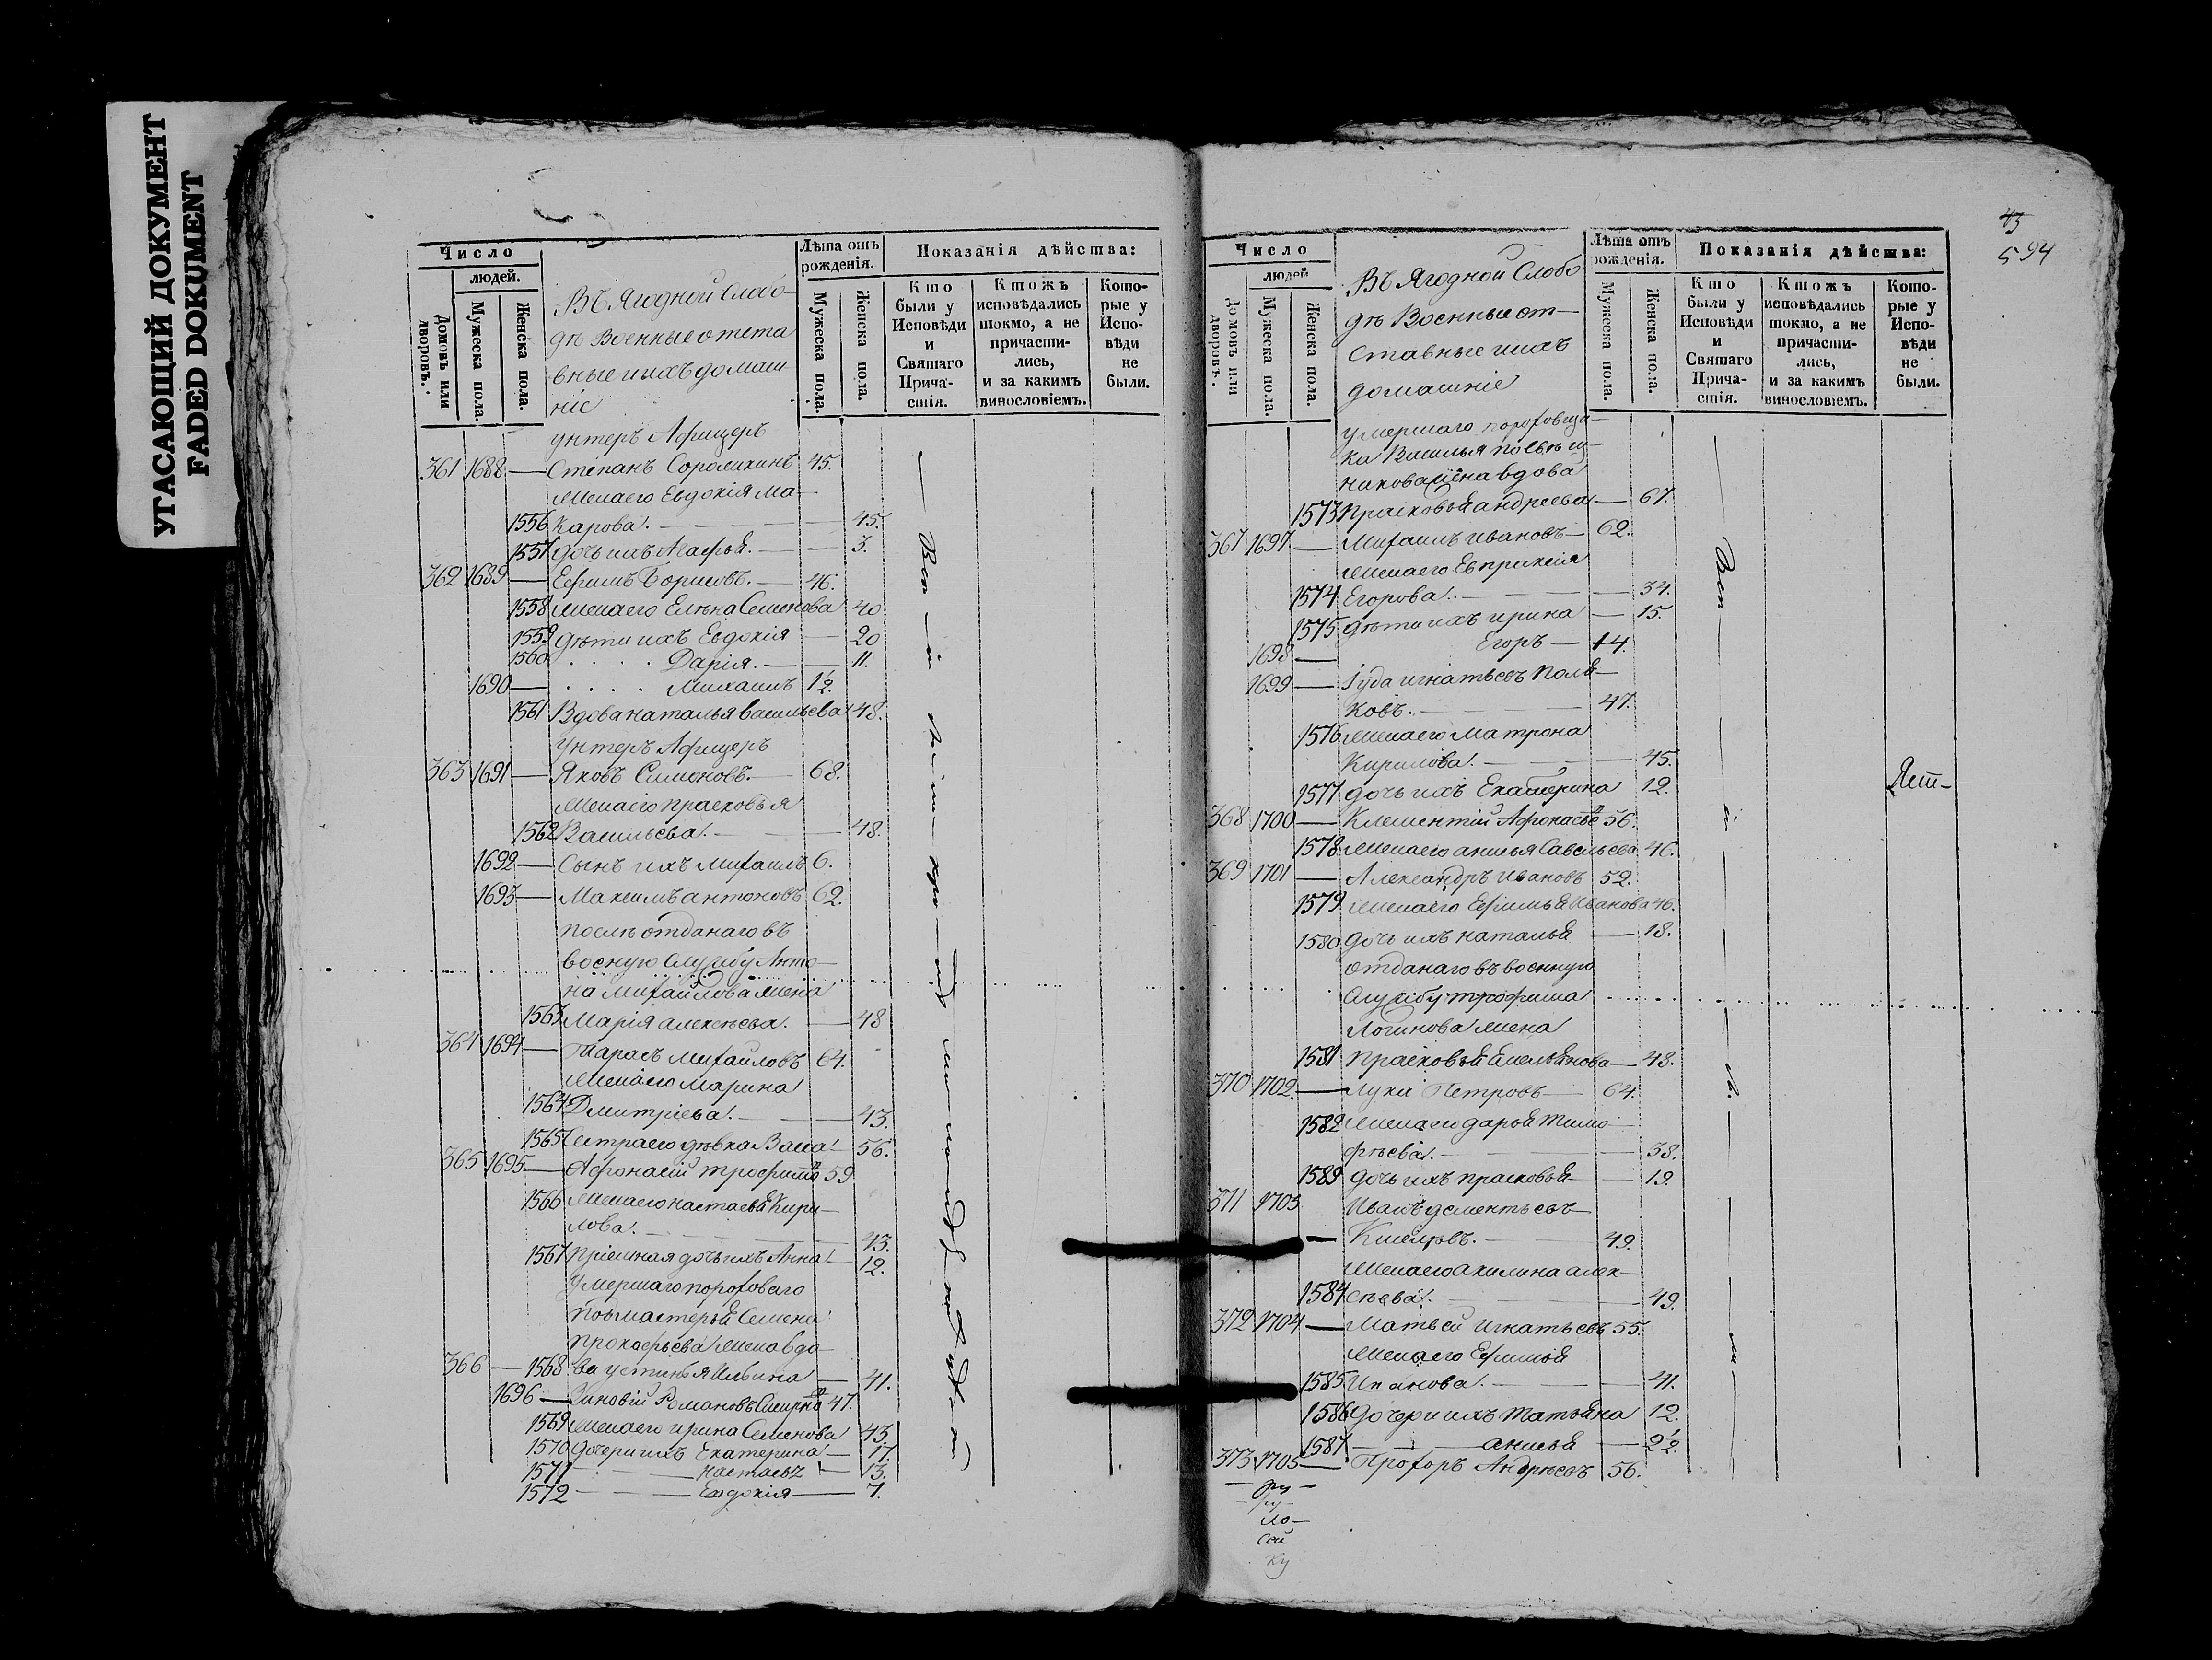 УГАСАЮЩИЙ ДОКУМЕНТ
FADED DOKUMENT
Число
людей.
Домовъ или дворовъ.
Мужеска пола.
Женска пола.
Въ Ягодной Слобо
дѣ Военные отста
вные и ихъ домаш
ніе
Лѣта отъ рожденія.
Мужеска пола.
Женска пола.
Показанія дѣйства:
Кто были у Исповѣди и Святаго Прича-стія.
Ктожъ исповѣдались токмо, а не причасти-лись, и за какимъ винословіемъ.
Кото-рые у Испо-вѣди не были.
унтеръ Афицеръ
361 1688 — Степанъ Соромихинъ 45.
жена его Евдокія Ма—
1556 карова. — 45.
1557 дочь ихъ Агафья. — 3.
362 1689 — Ефимъ Борисовъ. — 46.
1558 жена его Елѣна Семенова 40
1559 дѣти ихъ Евдокія — 20
1560 . . . . Дарія. — 11.
1690 — . . . . Михаилъ 1½.
1561 Вдова наталья васильева 48.
Унтеръ Афицеръ
363 1691 — Яковъ Симоновъ. — 68.
жена его прасковья
1562 Васильева. — 48.
1692 — Сынъ ихъ михаилъ 6.
1693 — Максимъ антоновъ 62.
послѣ отданаго въ
военую службу Анто—
на михайлова жена
1563 Марія алексѣева. — 48
364 1694 — Тарасъ михайловъ 64.
жена его марина
1564 Дмитріева. — 43.
1565 Сестра его дѣвка Васса — 56.
365 1695 — Афонасій трофимо 59
1566 жена его настасья Кири—
лова. — 43.
1567 пріемная дочь ихъ Анна — 12.
умершаго пороховаго
подмастерья Семена
прокофьева жена вдо—
366 — 1568 ва устинья Ильина — 41.
1696 — Зиновій Романовъ Смирно 47.
1569 жена его ирина Семенова 43.
1570 дочери ихъ Екатерина — 17.
1571 — настасья — 13.
1572 — Евдокія — 7.
43
594
Число
людей
Домовъ или дворовъ.
Мужеска пола.
Женска пола.
Въ Ягодной Слобо
дѣ Военные от—
ставные и ихъ
домашніе
Лѣта отъ рожденія.
Мужеска пола.
Женска пола.
Показанія дѣйства:
Кто были у Исповѣди и Святаго Прича-стія.
Ктожъ исповѣдались токмо, а не причасти-лись, и за какимъ винословіемъ.
Кото-рые у Испо-вѣди не были.
умершаго
ка Василья
вдова
1573 прасковья андреева — 67.
367 1697 — Михаилъ ивановъ — 62.
жена его Евпраксия
1574 Егорова. — 34.
1575 дѣти ихъ ирина — 15.
1698 — Егоръ — 14.
1699 — Іуда игнатьевъ поля—
ковъ. — 47.
1576 жена его матрона
Кирилова. — 45.
1577 дочь ихъ Екатерина 12.
368 1700 — Клементій Афонасье 56.
1578 жена его анисья Савельева 46.
369 1701 — Александръ ивановъ 52.
1579 жена его Ефимья Иванова 46.
1580 дочь ихъ наталья — 18.
отданаго въ военную
службу трофима
Логинова жена
1581 прасковья Емельянова — 48.
370 1702 — лука Петровъ — 64.
1582 жена его дарья тимо—
фѣева. — 38.
1583 дочь ихъ прасковья — 19.
371 1703 Иванъ дементьевъ
— 49.
жена его акилина алек—
1584 сѣева. — 49.
372 1704 — Матвей игнатьевъ 55.
жена его Ефимья
1585 Иванова. — 41.
1586 дочери ихъ татьяна 12.
1587 — анисья — 2½.
373 1705 — Прохоръ Андрѣевъ 56.